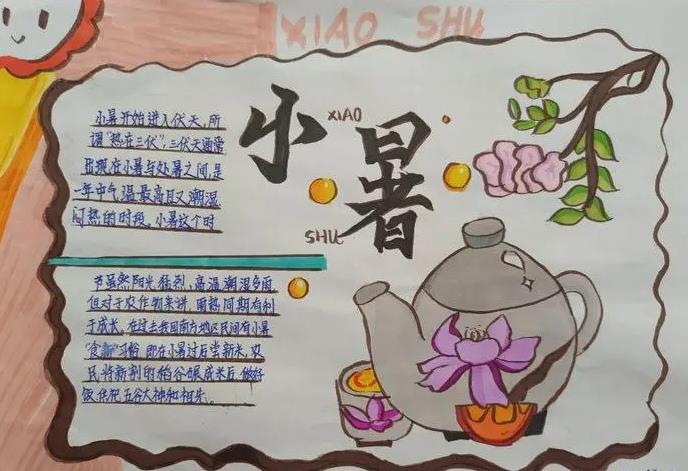 XIAO SHU
小暑
XIAO
SHU
小暑开始进入伏天,所
谓“热在三伏”,三伏天通常
出现在小暑与处暑之间,是
一年中气温最高且又潮湿
闷热的时段。小暑这个时
节虽然阳光猛烈,高温潮湿多雨,
但对于农作物来讲,雨热同期有利
于成长。在过去我国南方地区民间有小暑
“食新”习俗,即在小暑过后尝新米,农
民将新割的稻谷碾成米后,做好
饭供祀五谷大神和祖先。